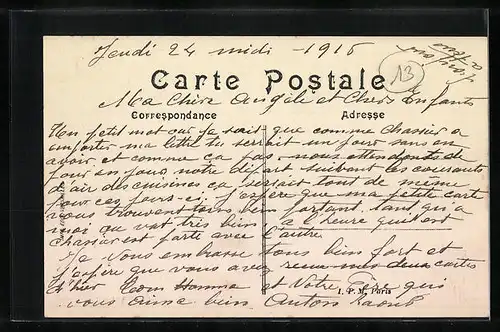 Jeudi 24 midi 1915
13
Carte Postale
Ma Chère Angèle et Chers Enfants
Correspondance
Adresse
Un petit mot car je sait que comme Chassier a
emporter ma lettre tu serait un jour sans en
avoir et comme ça pas nous attendons de
jour en jour notre départ suivant les courants
d'air des cuisines ça serait tout de meme
pour ces jours-ci j'espère que ma petite carte
vous trouveront tous bien portant tant qu'a
moi ça vat très bien a l'heure qu'il est
Chassier est parte avec l'autre
Je vous embrasse tous bien fort et
j'espère que vous avez reçu mes deux cartes
d'hier Ton Homme et Votre Père qui
I. P. M. Paris
vous aime bien Anton Raoul